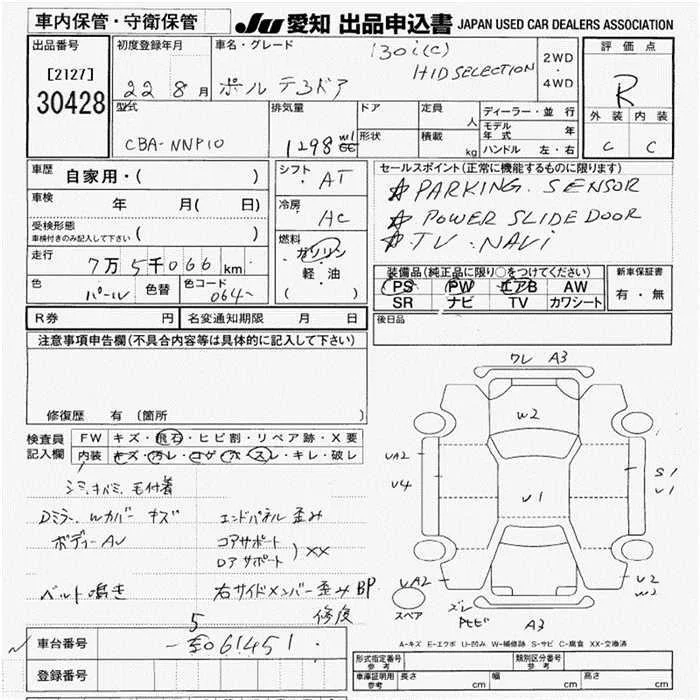 車内保管・守衛保管
JU 愛知 出品申込書 JAPAN USED CAR DEALERS ASSOCIATION
出品番号
[2127]
30428
初度登録年月
22 8 月
車名・グレード
ポルテ3ドア
130i(C)
HID SELECTION
2WD
・
4WD
評価点
R
外装 内装
C C
型式
CBA-NNP10
排気量
1298 cc
ドア
形状
定員
人
積載
kg
ディーラー・並行
モデル年式 年
ハンドル 左・右
車歴 自家用・( )
車検 年 月( 日)
受検形態
車検付きのみ記入して下さい ( )
走行 7万5千066 km
色 パール 色替 色コード 064
シフト AT
冷房 AC
燃料
ガソリン
軽・油
( )
セールスポイント(正常に機能するものに限ります)
☆ PARKING. SENSOR
☆ POWER SLIDE DOOR
☆ TV・NAVi
装備品(純正品に限り○をつけてください)
PS PW エアB AW
SR ナビ TV カワシート
新車保証書
有・無
後日品
R券 円 名変通知期限 月 日
注意事項申告欄(不具合内容等は具体的に記入して下さい)
修復歴 有 (箇所 )
検査員
記入欄
FW キズ・飛石・ヒビ割・リペア跡・X要
内装 キズ・汚レ・コゲ・穴・スレ・キレ・破レ
シミ、キバミ、毛付着
Dミラー、Wカバー キズ エンドパネル歪み
ボディーAU コアサポート
ロアサポート ) XX
ベルト鳴き 右サイドメンバー歪み BP
修復
ワレ A3
W2
UA2
U4
U1
S1
U1
UA2
U2
W2
スペア
ズレ
A3
A-キズ E-エクボ U-凹み W-補修跡 S-サビ C-腐食 XX-交換済
車台番号 5061451
登録番号
形式指定番号
参考
類別区分番号
参考
車庫証明用
参考
長さ cm 幅 cm 高さ cm